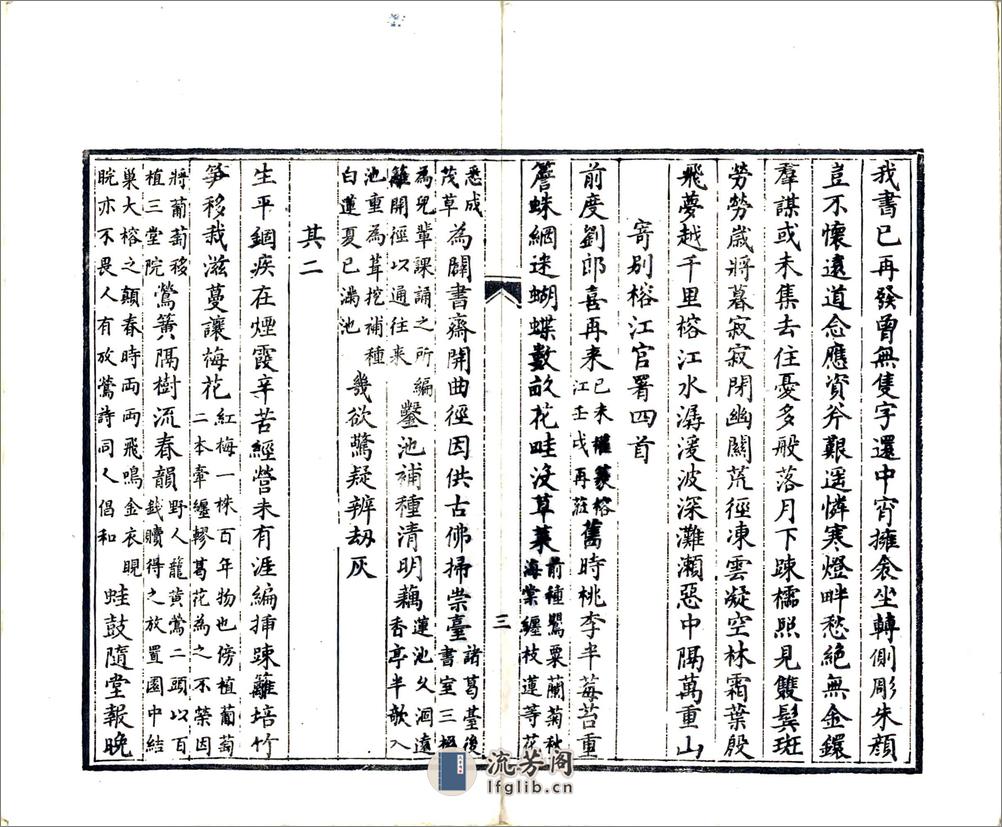 我書已再發曾無隻字還中宵擁衾坐轉側彫朱顏
豈不懷遠道念應資斧艱遥憐寒燈畔愁絕無金鐶
羣謀或未集去住憂多般落月下踈櫺照見雙鬂斑
勞勞歲將暮寂寂閉幽關荒徑凍雲凝空林霜葉殷
飛夢越千里榕江水潺湲波深灘瀬惡中隔萬重山
寄别榕江官署四首
前度劉郎喜再来
已未權篆榕
江壬戌再莅
舊時桃李半莓苔重
簷蛛網迷蝴蝶數畝花畦没草萊
前種罌粟蘭菊秋
海棠纏枝蓮等花
三
悉成
茂草
為闢書齋開曲徑因供古佛掃崇臺
諸葛臺後
書室三楹
為兒輩課誦之所編
籬開徑以通往来
鑿池補種清明藕
蓮池久涸遠
香亭半欹入
池重為葺挖補種
白蓮夏已滿池
幾欲驚疑辨刼灰
其二
生平錮疾在煙霞辛苦經營未有涯編揷踈籬培竹
笋移栽滋蔓讓梅花
紅梅一株百年物也傍植葡萄
二本牽纏轇葛花為之不榮因
將葡萄移
植三堂院
鶯簧隔樹流春韻
野人籠黄鶯二頭以百
錢贖得之放置園中結
巢大榕之顛春時两两飛鳴金衣睍
睆亦不畏人有放鶯詩同人倡和
蛙鼓隨堂報晚
流芳阁
lfglib.cn